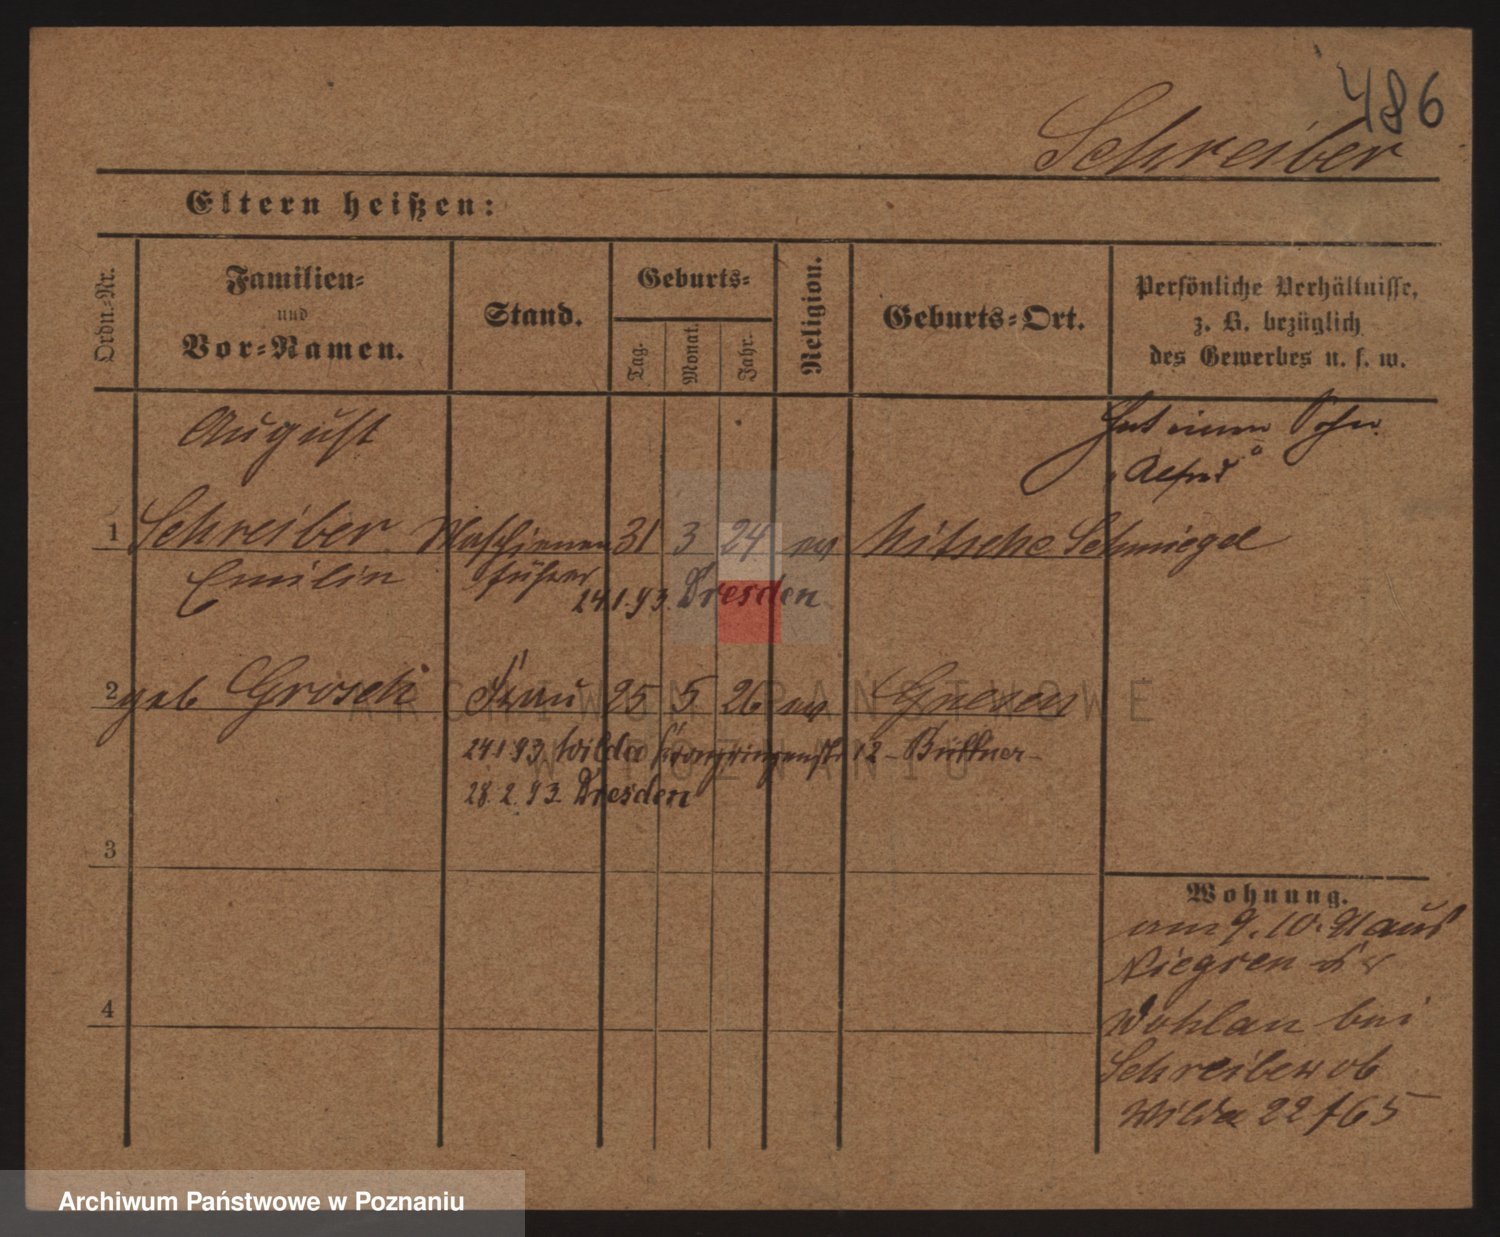 486
Schreiber
Eltern heißen:
Ordn.-Nr.
Familien-
und
Vor-Namen.
Stand.
Geburts-
Tag.
Monat.
Jahr.
Religion.
Geburts-Ort.
Persönliche Verhältnisse,
z. B. bezüglich
des Gewerbes u. s. w.
August
Hat einen Sohn
"Alfred"
1 Schreiber Maschienen 31 3 24 ev Nitsche Schmiegel
Emilin führer
24.1.93. Dresden
2 geb Grosch Frau 25 5 26 ev Gnesen
24.1.93. Wilda Kronprinzenstr. 12 - Büttner -
28.2.93. Dresden
3
4
Wohnung.
am 9. 10. 91 aus
Kr
Wohlau bei
Schreiber ob
Wilda 22/65
ARCHIWUM PAŃSTWOWE
W POZNANIU
Archiwum Państwowe w Poznaniu